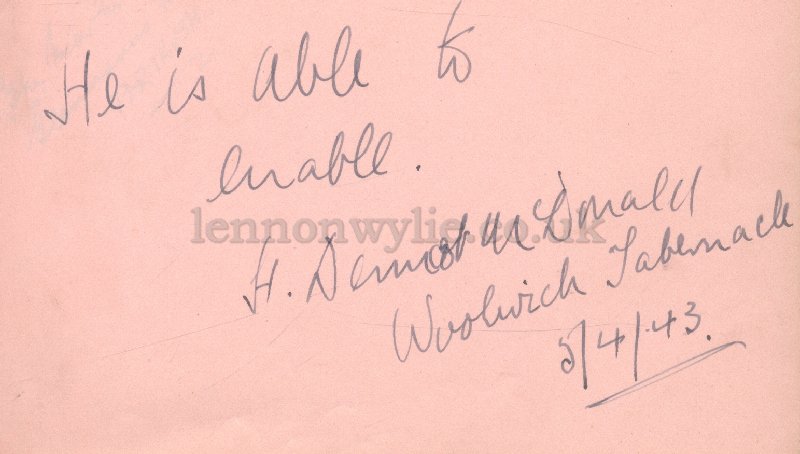 He is able to
enable.
lennonwylie.co.uk
H. Dermot McDonald
Woolwich Tabernacle
5/4/43.